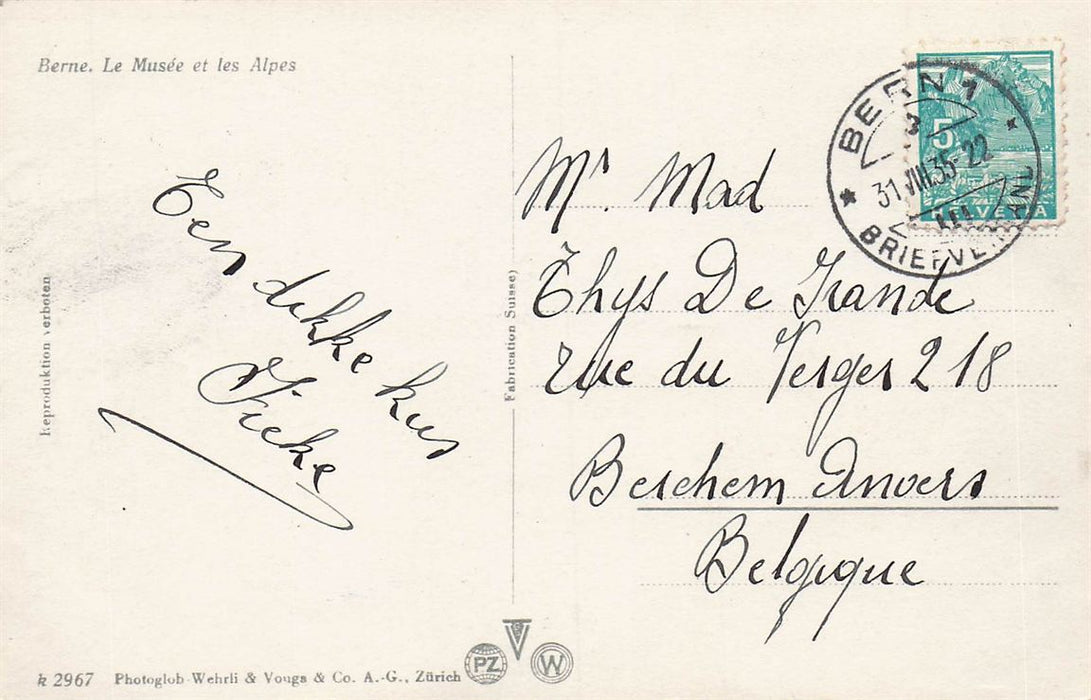 Berne. Le Musée et les Alpes
Een dikke kus
Reproduktion verboten
Fabrication Suisse)
BERN 1
3
31.VIII.35-22
BRIEFVERSAND
5
HELVETIA
Mr Mad
Thys De
rue du Verger 218
Berchem Anvers
Belgique
k 2967 Photoglob-Wehrli & Vouga & Co. A.-G., Zürich
PZ
V
W